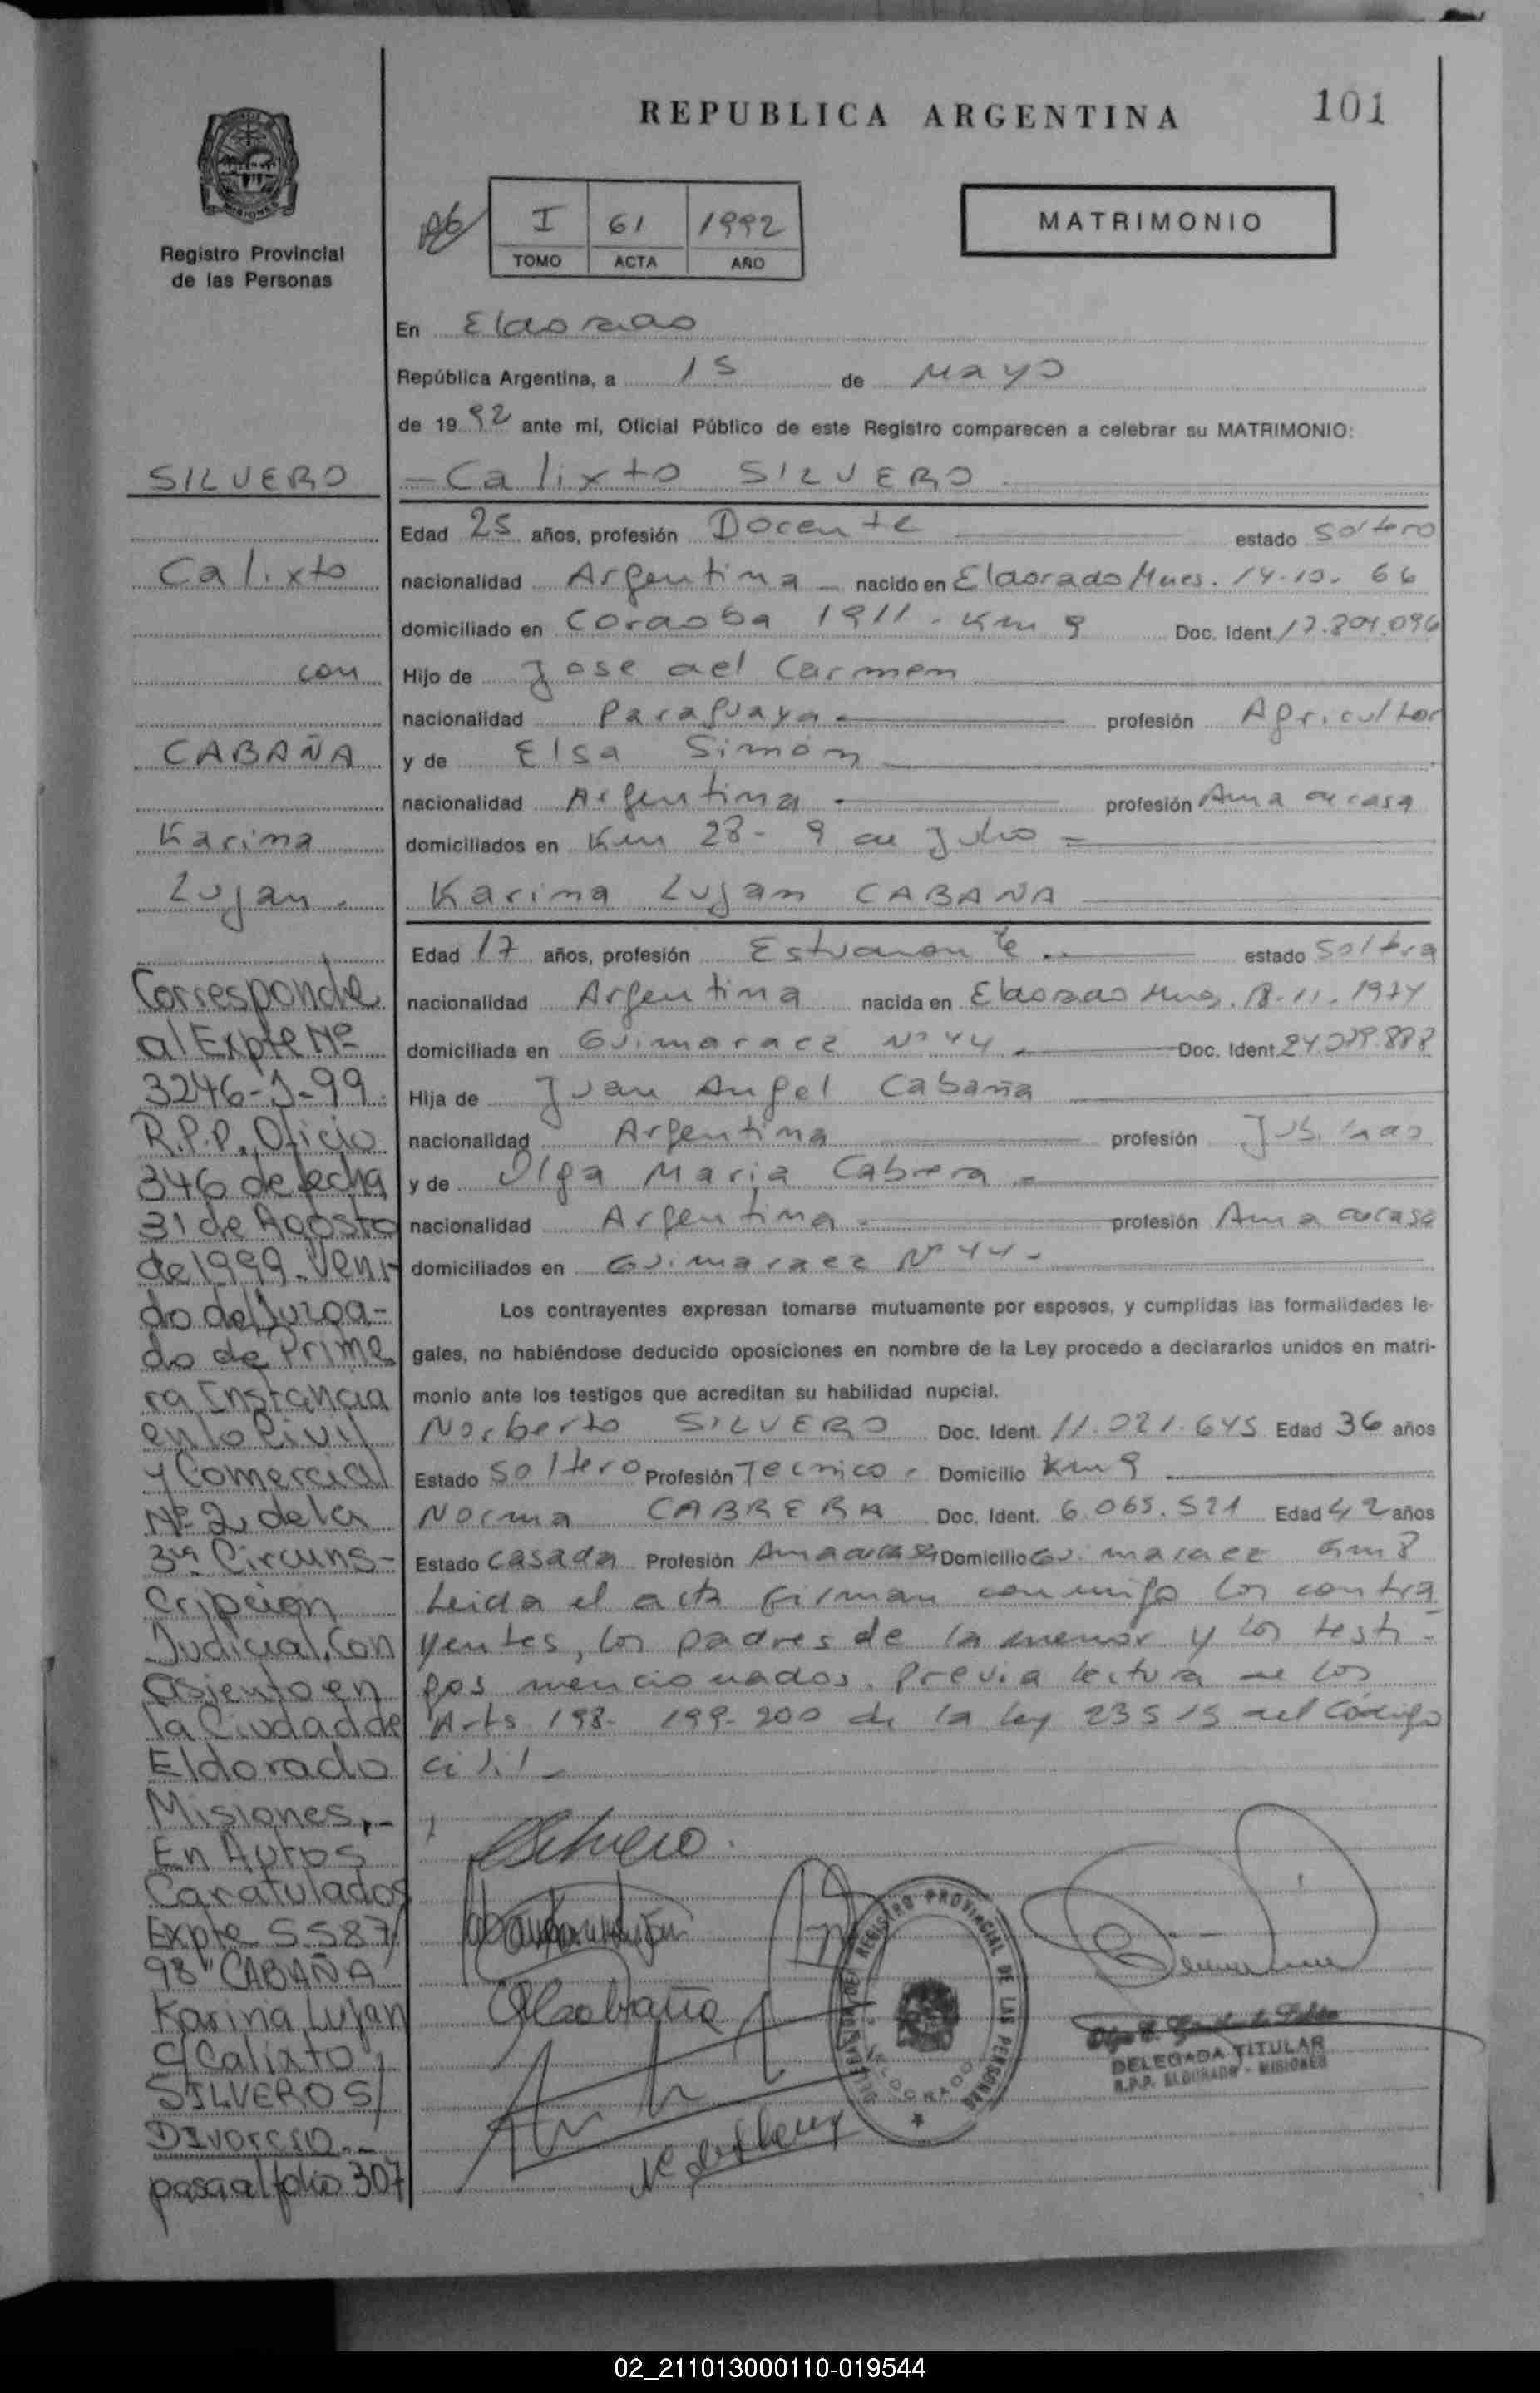 REPUBLICA ARGENTINA
101
MISIONES
Registro Provincial
de las Personas
I 61 1992
TOMO ACTA AÑO
MATRIMONIO
En Eldorado
República Argentina, a 15 de Mayo
de 1992 ante mi, Oficial Público de este Registro comparecen a celebrar su MATRIMONIO:
- Calixto SILVERO
Edad 25 años, profesión Docente estado Soltero
nacionalidad Argentina - nacido en Eldorado Mnes. 14-10-66
domiciliado en Cordoba 1911 - Km 9 Doc. Ident. 17.804.096
Hijo de Jose del Carmen
nacionalidad Paraguaya - profesión Agricultor
y de Elsa Simón
nacionalidad Argentina - profesión Ama de casa
domiciliados en Km 28 - 9 de Julio -
Karina Lujan CABAÑA
Edad 17 años, profesión Estudiante - estado Soltera
nacionalidad Argentina nacida en Eldorado Mnes. 18-11-1974
domiciliada en Guimaraez Nº 44 - Doc. Ident.
Hija de Juan Angel Cabaña
nacionalidad Argentina profesión Jubilado
y de Olga Maria Cabrera -
nacionalidad Argentina - profesión Ama de casa
domiciliados en Guimaraez Nº 44 -
Los contrayentes expresan tomarse mutuamente por esposos, y cumplidas las formalidades le-
gales, no habiéndose deducido oposiciones en nombre de la Ley procedo a declararlos unidos en matri-
monio ante los testigos que acreditan su habilidad nupcial.
Norberto SILVERO Doc. Ident. 11.021.645 Edad 36 años
Estado Soltero Profesión Tecnico - Domicilio Km 9
Norma CABRERA Doc. Ident. 6.065.521 Edad 42 años
Estado Casada Profesión Ama de casa Domicilio Guimaraez Km 8
Leida el acta firman conmigo los contra
yentes, los padres de la menor y los testi-
gos mencionados. Previa lectura de los
Arts 198- 199-200 de la ley 23515 del Código
civil -
SILVERO
Calixto
con
CABAÑA
Karina
Lujan.
Corresponde
al Expte Nº
3246-J-99.
R.P.P. Oficio
346 de fecha
31 de Agosto
de 1999. Veni-
do del Juzga-
do de Prime
ra Instancia
en lo Civil
y Comercial
Nº 2, de la
3ra Circuns-
cripción
Judicial, Con
asiento en
la Ciudad de
Eldorado
Misiones,-
En Autos
Caratulados
Expte 5.587/
98" CABAÑA
Karina Lujan
c/ Calixto
SILVERO S/
DIVORCIO.-
pasa al folio 307
Silvero
REGISTRO PROVINCIAL DE LAS PERSONAS
ELDORADO
DELEGADA TITULAR
R.P.P. ELDORADO - MISIONES
02_211013000110-019544